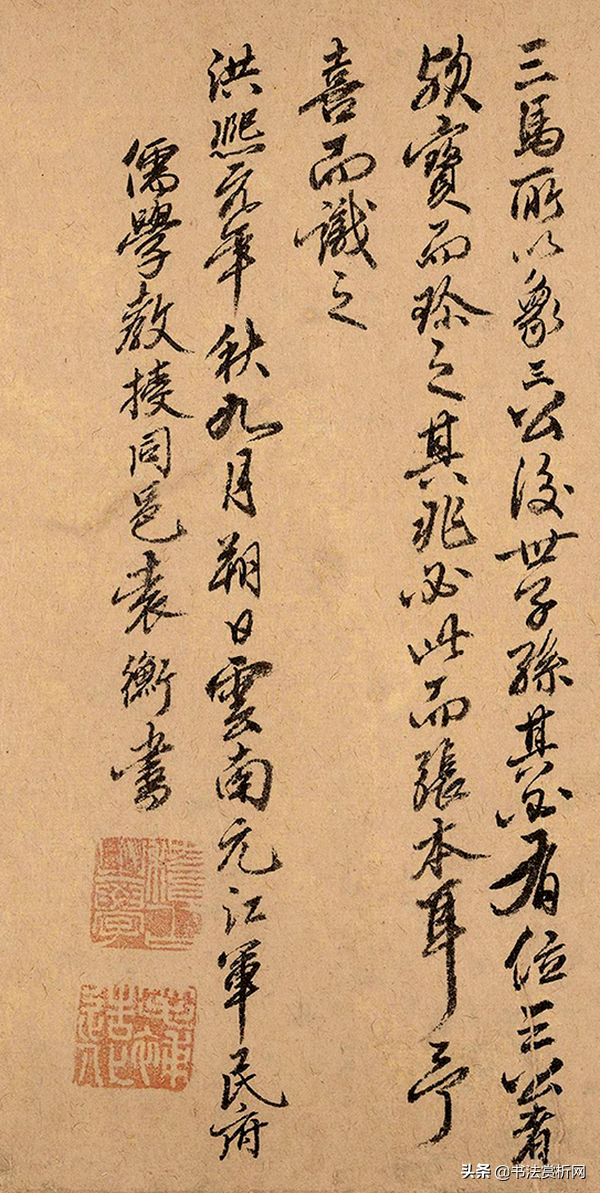 三馬所以象三公後世子孫其必有位三公者
欤寶而珍之其兆必此而張本耳予
喜而識之
洪熙元年秋九月朔日雲南元江軍民府
儒學教授同邑袁衡書
头条 @书法赏析网